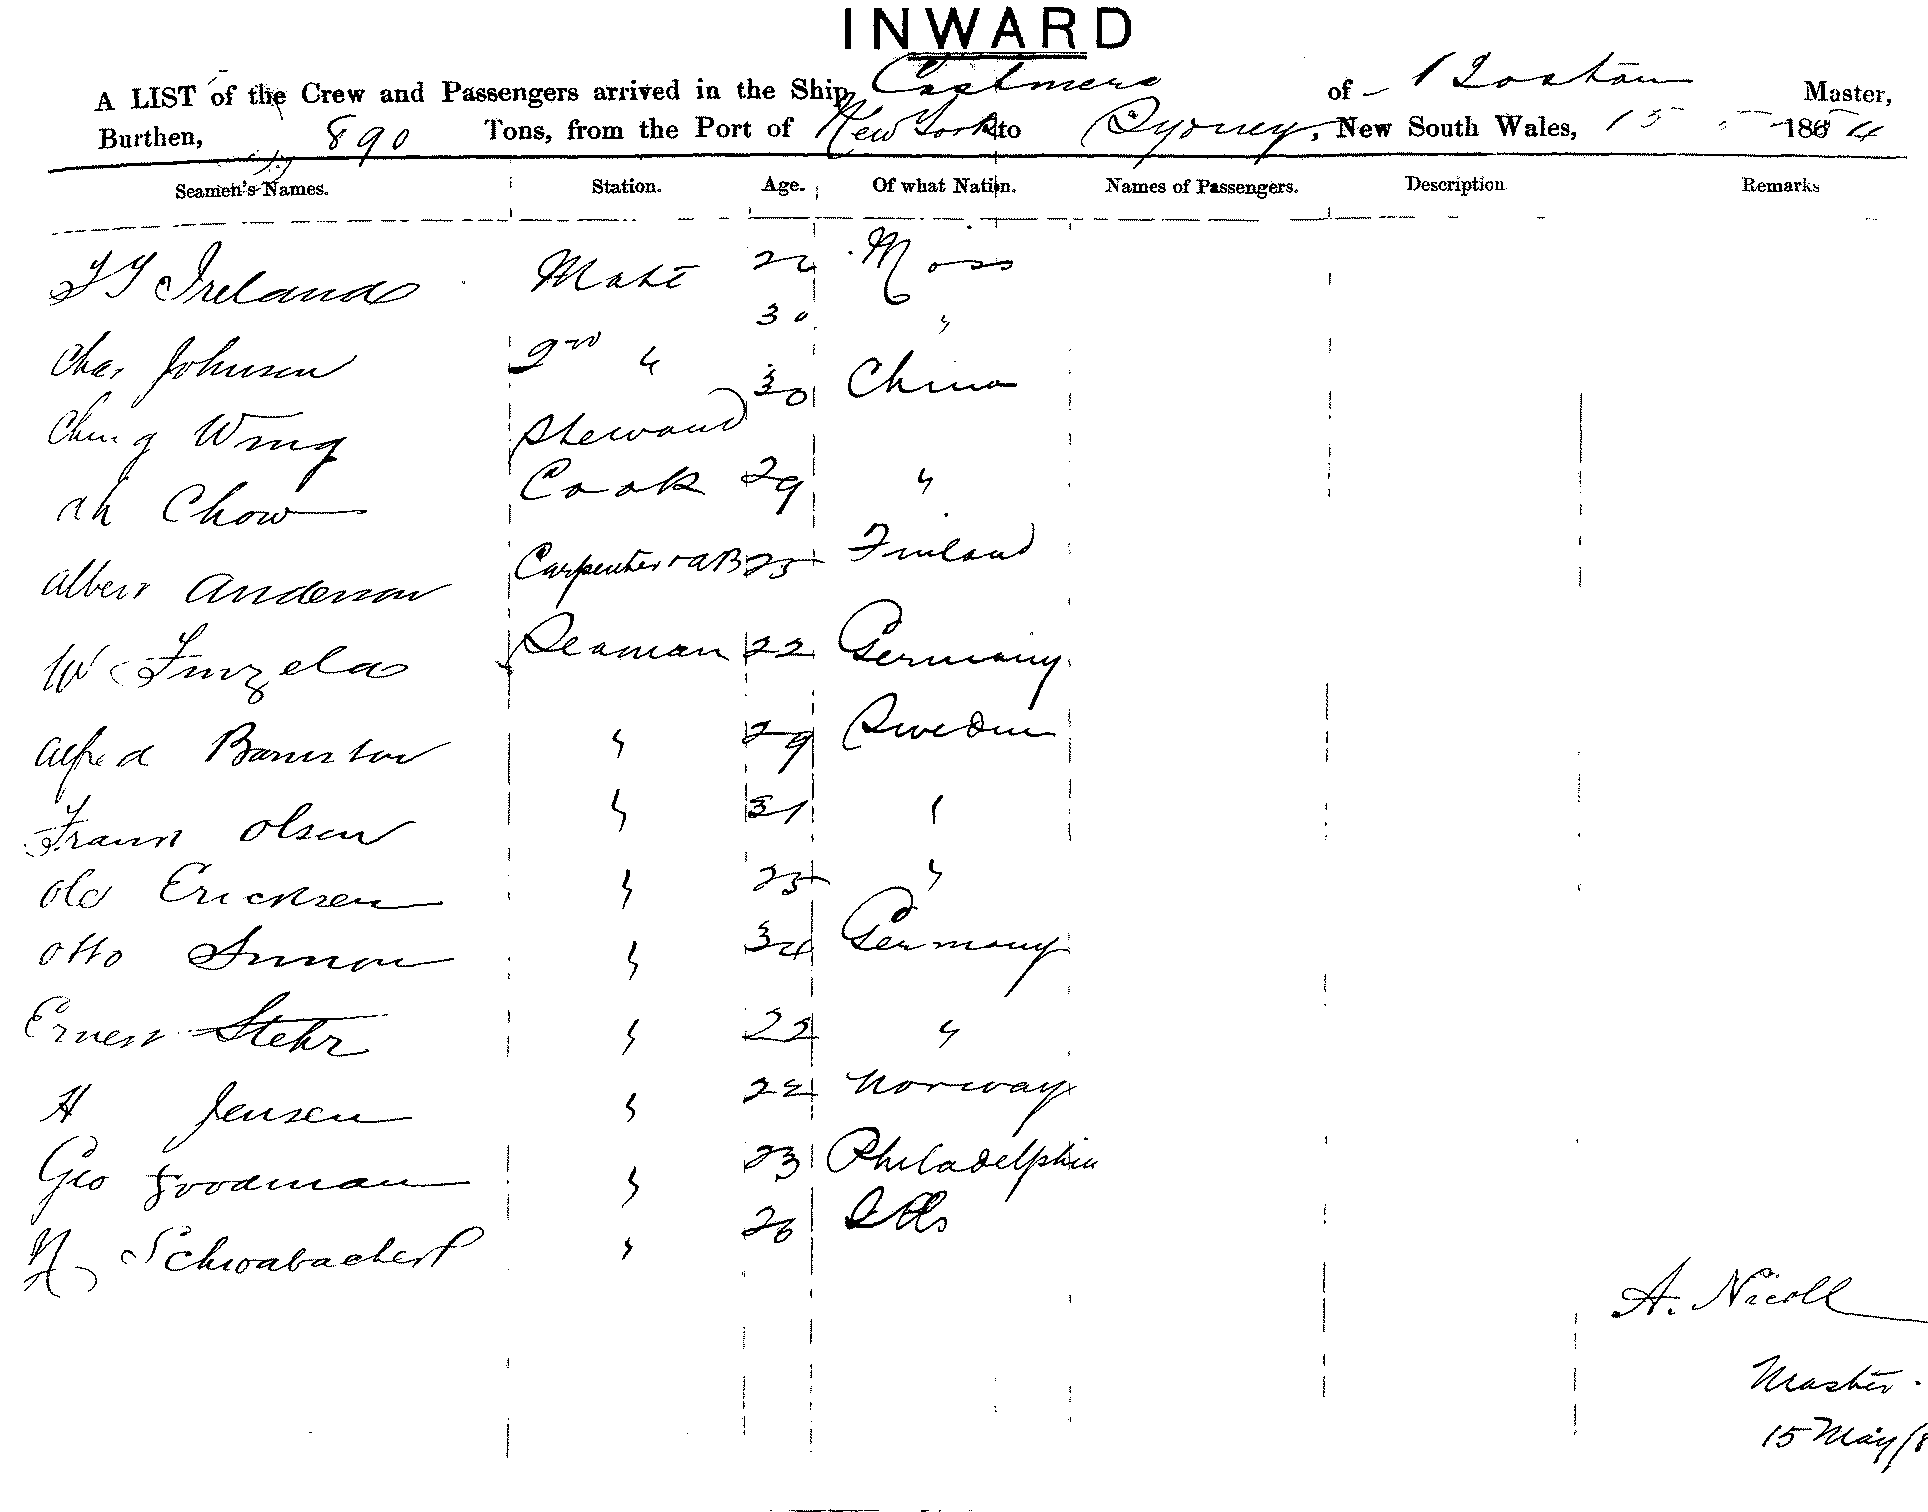 INWARD
A LIST of the Crew and Passengers arrived in the Ship Cashmere of Boston Master,
Burthen, 890 Tons, from the Port of New York to Sydney, New South Wales, 15 - 5 - 186
Seamen's Names. Station. Age. Of what Nation. Names of Passengers. Description Remarks
Ireland Mate 24 Moss
Chas Johnson 2nd " 30 "
Ching Wing Steward 30 China
Ah Chow Cook 29 "
Albert Anderson Carpenter + AB 25 Finland
W Seaman 22 Germany
Alfred " 29 Sweden
Frank Olsen " 31 "
Ole Ericksen " 25 "
Otto Simon " 34 Germany
Ernest Stehr " 22 "
H Jensen " 22 Norway
Geo Goodman " 23 Philadelphia
Schwabacher " 26
A. Nicoll
Master.
15 May/8